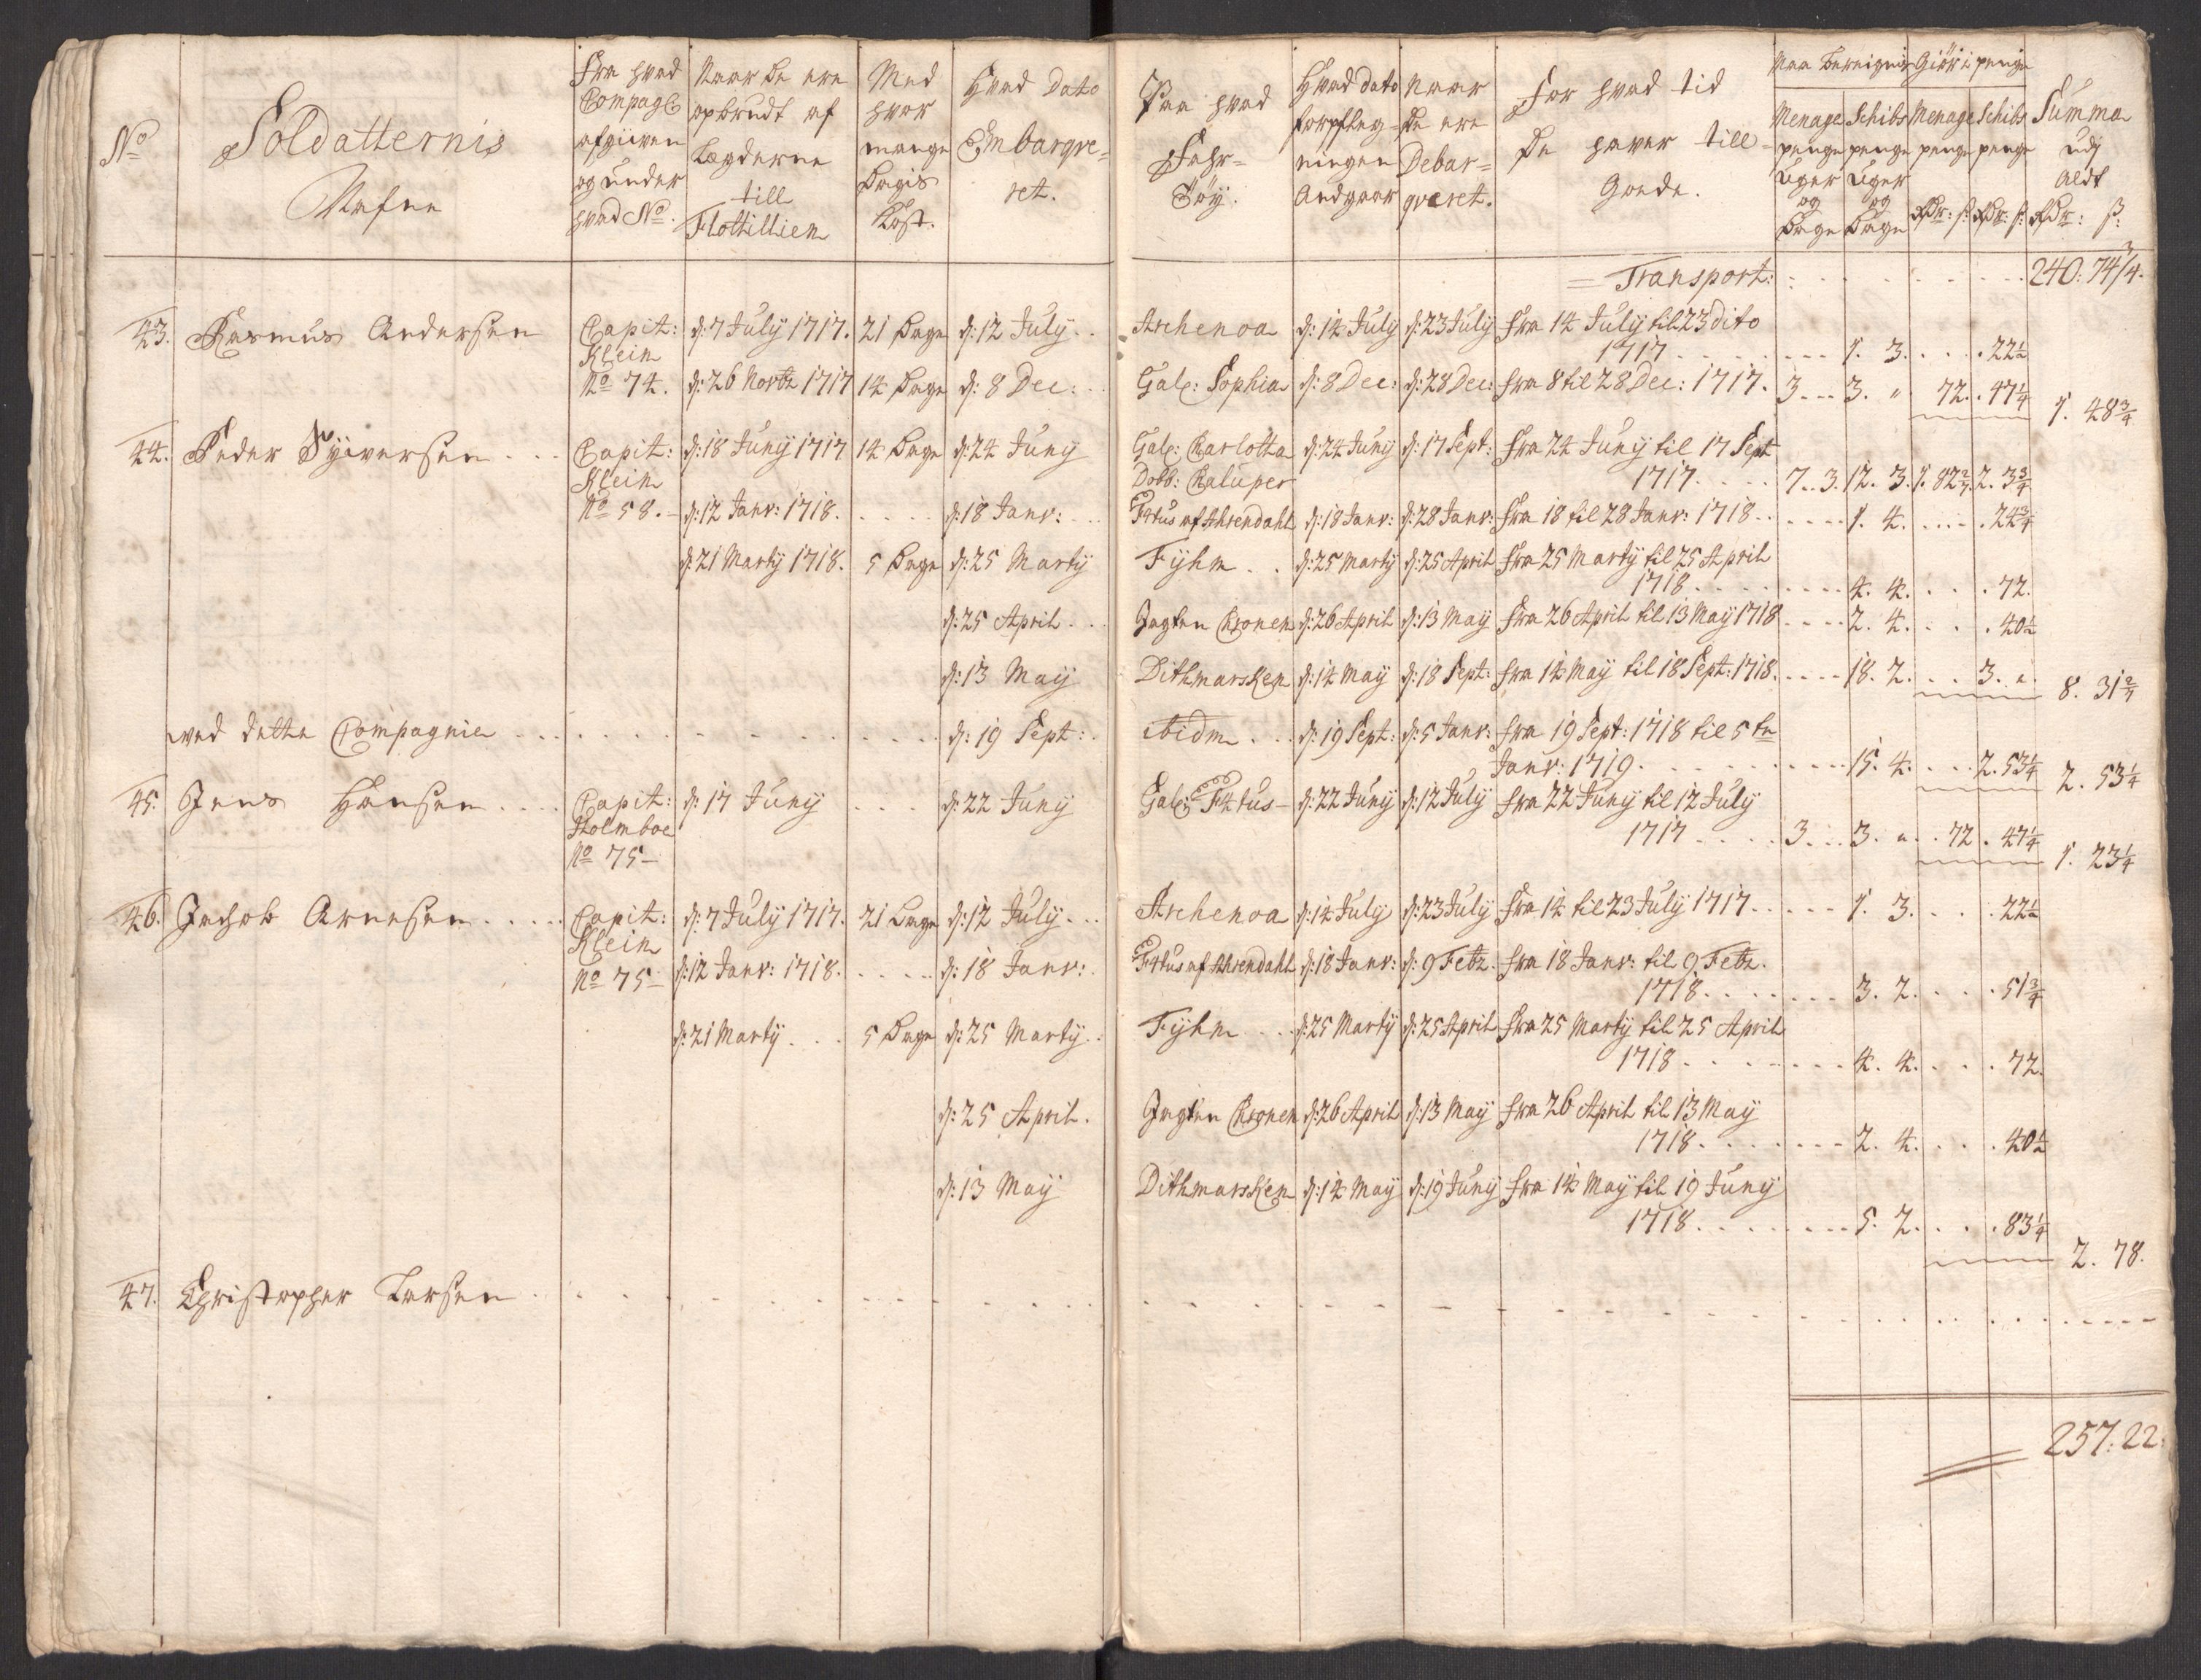 No
Soldatternis
Nafne
Fra hvad
Compagl
afgiven
og under
hvad No.
Naar de ere
opbrudt af
Lægderne
till
Flottillien
Med
hvor
mange
Dagis
Kost.
Hvad Dato
Embarqve=
ret.
Paa hvad
Fahr=
Töy.
Hvad dato
forpfleg=
ningen
Andgaar
Naar
de ere
Debar=
qveret.
For hvad tid
de haver till
Gode.
Naa bereignis
Menage
penge
Uger
og
Dage
Schibs
penge
Uger
og
Dage
Giör i penge
Menage
penge
Rdr: ß:
Schibs
penge
Rdr: ß:
Summa
udj
aldt
Rdr: ß:
Transport: . . . . . . . 240: 74 3/4.
43. Rasmus Andersen Capit: d: 7 July 1717. 21 Dage d: 12 July . . Archenoa d: 14 July d: 23 July fra 14 July til 23 dito
Klein 1717 . . . . . . 1. 3. . . . 22 1/2
No 74. d: 26 Novbr 1717 14 Dage d: 8 Dec: . . Gal: Sophia d: 8 Dec: d: 28 Dec: fra 8 til 28 Dec: 1717. 3 . . . 3. " 72. . 47 1/4
1. 48 3/4
44. Peder Syversen . . . Capit: d: 18 Juny 1717 14 Dage d: 24 Juny Gal: Carlotta d: 24 Juny d: 17 Sept: fra 24 Juny til 17 Sept
Klein Dobb: Caluper 1717. . . . 7. . 3. 12. 3. 1. 82 2/7. 2. 3 3/4
No 58. - d: 12 Janv: 1718. . . . . d: 18 Janv: . . Pr4tus af Ahrendahl d: 18 Janv: d: 28 Janv: fra 18 til 28 Janv: 1718 . . . . . . 1. 4. . . . . 24 3/4
d: 21 Marty 1718. 5 Dage d: 25 Marty Fyhn . . d: 25 Marty d: 25 April fra 25 Marty til 25 April
1718 . . . . . . . 4. 4. . . . 72.
d: 25 April . . Jagten Cronen d: 26 April d: 13 May fra 26 April til 13 May 1718 . . . . 2. 4. . . . 40 1/2
d: 13 May Dithmarsken d: 14 May d: 18 Sept: fra 14 May til 18 Sept: 1718. . . . . 18. 2. . . 3. ". 8. 31 2/7
ved dette Compagnie . . . . . . . . . . . . d: 19 Sept: . ibidm . . d: 19 Sept: d: 5 Janv: fra 19 Sept: 1718 til 5te
Janv: 1719. . . . . . . . 15. 4. . . 2. 53 1/4 2. 53 1/4
45. Jens Hansen . . . Capit: d: 17 Juny . . . d: 22 Juny Gal: Pr4tus - d: 22 Juny d: 12 July fra 22 Juny til 12 July
Holmboe 1717 . . . . 3 . . . 3. " . 72 . 47 1/4
No 75 - 1. 23 1/4
46. Jachob Arnesen . . . . . Capit: d: 7 July 1717. 21 Dage d: 12 July . . . Archenoa d: 14 July d: 23 July fra 14 til 23 July 1717 . . . . . 1. 3. . . . 22 1/2
Klein
No 75 - d: 12 Janv: 1718. . . . . d: 18 Janv: . Pr4tus af Ahrendahl d: 18 Janv: d: 9 Febr. fra 18 Janv: til 9 Febr.
1718 . . . . . . . 3. 2. . . . . 51 3/4
d: 21 Marty . . . 5 Dage d: 25 Marty . . Fyhn . . . d: 25 Marty d: 25 April fra 25 Marty til 25 April
1718 . . . . . . . 4. 4. . . . . 72.
d: 25 April . Jagten Cronen d: 26 April d: 13 May fra 26 April til 13 May
1718 . . . . . . . 2. 4. . . . . 40 1/2
d: 13 May Dithmarsken d: 14 May d: 19 Juny fra 14 May til 19 Juny
1718 . . . . . . . 5. 2. . . . . 83 1/4
2. 78.
47. Christopher Larsen . . . . . . . . . .
257: 22: